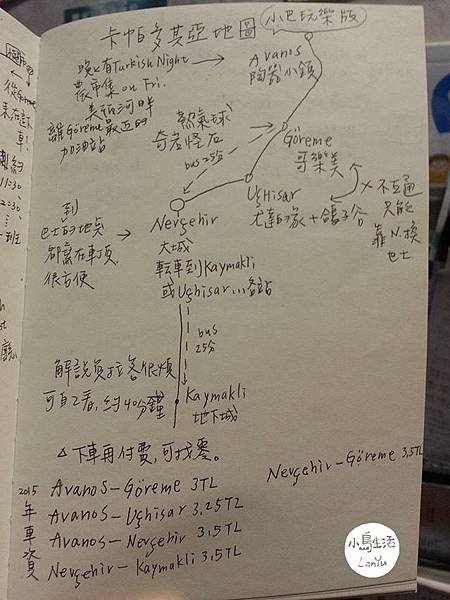 卡帕多其亞地圖
小巴玩樂版
晚有Turkish Night
農市集 on Fri.
美拍河畔
離Göreme最近的
加油站
Avanos
陶瓷小鎮
熱氣球
奇岩怪石
bus 25分
Göreme
哥樂美
Uçhisar
尤達的家+鴿子谷
不互通
只能
靠N.換
巴士
到
巴士的地点
都寫在車頂
很方便
Nevşehir
大城
転車到Kaymakli
或Uçhisar小各站
bus
25分
解說員拉客很煩
可自己看,約40分鐘
Kaymakli
地下城
△下車再付費,可找零。
2015
年
車
資
Avanos-Göreme 3TL
Avanos-Uçhisar 3,25TL
Avanos-Nevşehir 3,5TL
Nevşehir-Kaymakli 3,5TL
Nevşehir-Göreme 3,5TL
小鳥生活
11:30
2:30
一班